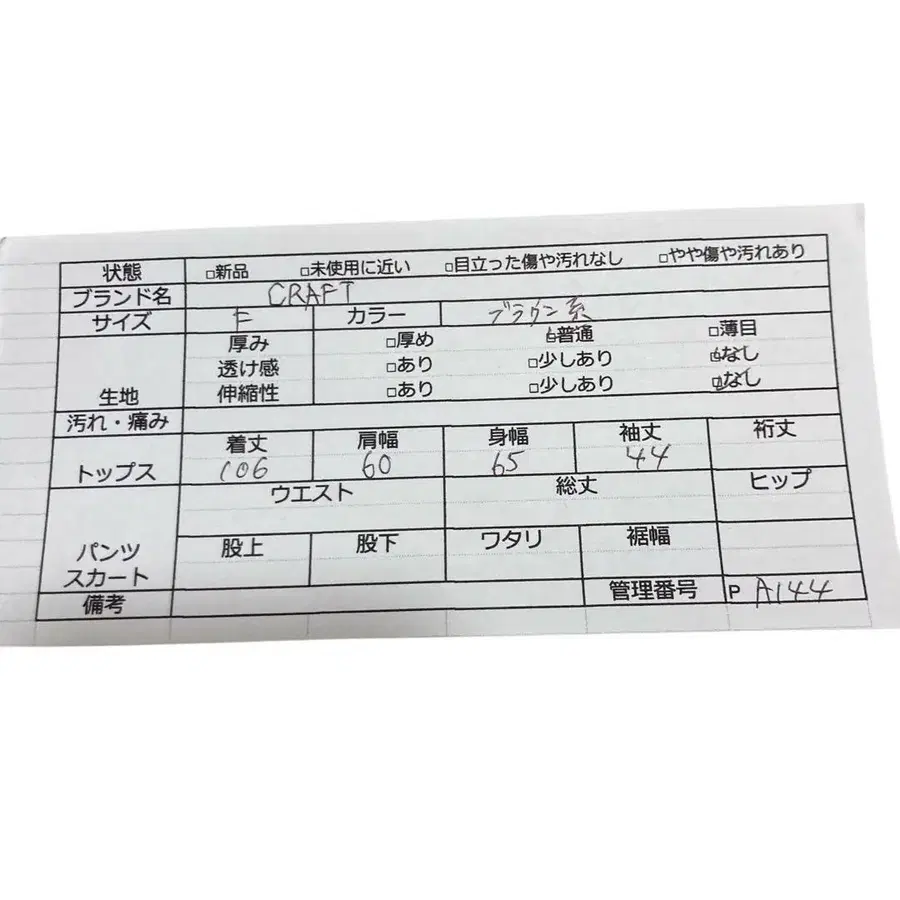 状態 □新品 □未使用に近い □目立った傷や汚れなし □やや傷や汚れあり
ブランド名 CRAFT
サイズ F カラー ブラウン系
厚み □厚め □普通 □薄目
透け感 □あり □少しあり □なし
生地 伸縮性 □あり □少しあり □なし
汚れ・痛み
着丈 肩幅 身幅 袖丈 裄丈
トップス 106 60 65 44
ウエスト 総丈 ヒップ
股上 股下 ワタリ 裾幅
パンツ
スカート
備考 管理番号 P A144